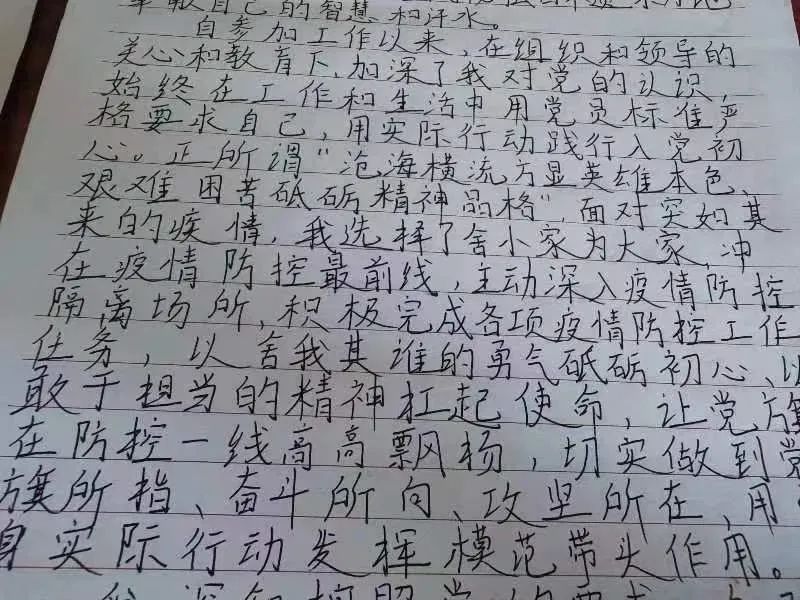 奉献自己的智慧和汗水。
自参加工作以来，在组织和领导的
关心和教育下，加深了我对党的认识，
始终在工作和生活中用党员标准严
格要求自己，用实际行动践行入党初
心。正所谓“沧海横流方显英雄本色、
艰难困苦砥砺精神品格”，面对突如其
来的疫情，我选择了舍小家为大家，冲
在疫情防控最前线，主动深入疫情防控
隔离场所，积极完成各项疫情防控工作
任务，以舍我其谁的勇气砥砺初心、以
敢于担当的精神扛起使命，让党旗
在防控一线高高飘扬，切实做到党
旗所指、奋斗所向、攻坚所在，用
身实际行动发挥模范带头作用。